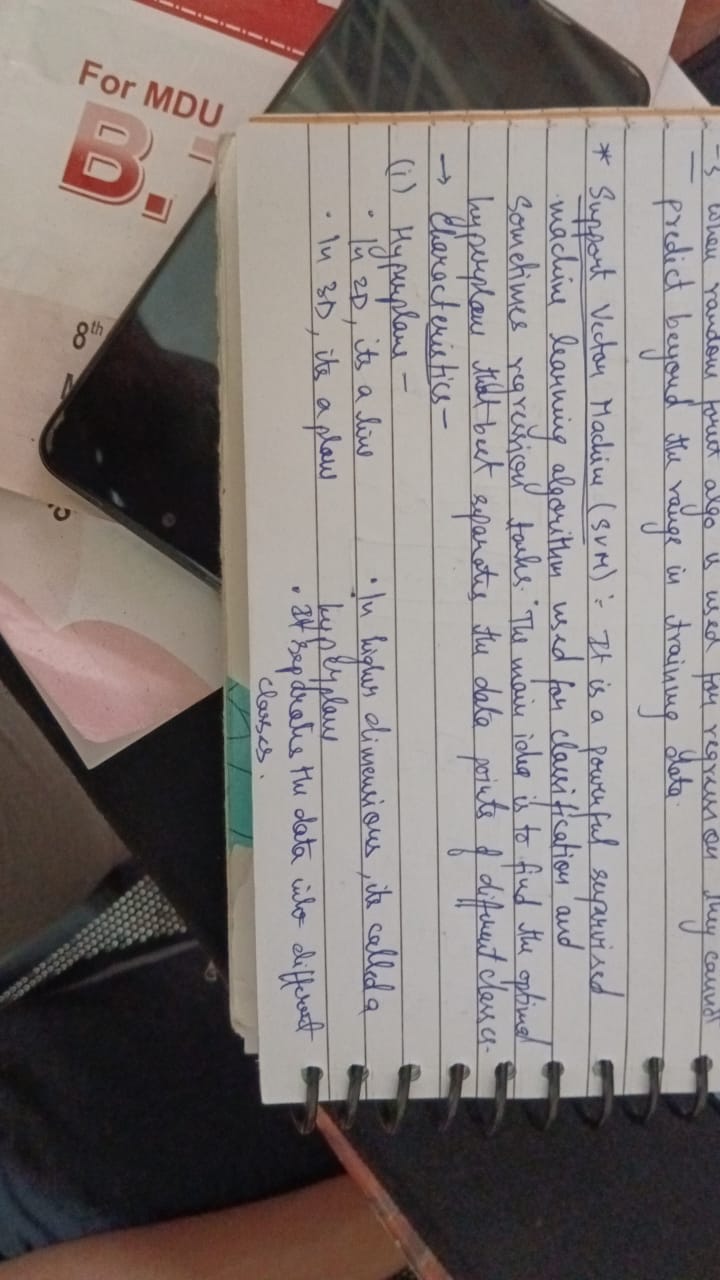 For MDU
B.
8th
→ when random forest algo is used for regression they cannot
predict beyond the range in training data.
* Support Vector Machine (SVM) :- It is a powerful supervised
machine learning algorithm used for classification and
sometimes regression tasks. The main idea is to find the optimal
hyperplane that best separates the data points of different classes.
→ Characteristics -
(i) Hyperplane -
• In 2D, its a line
• In 3D, its a plane
• In higher dimensions, its called a
hyperplane
• It separates the data into different
classes.